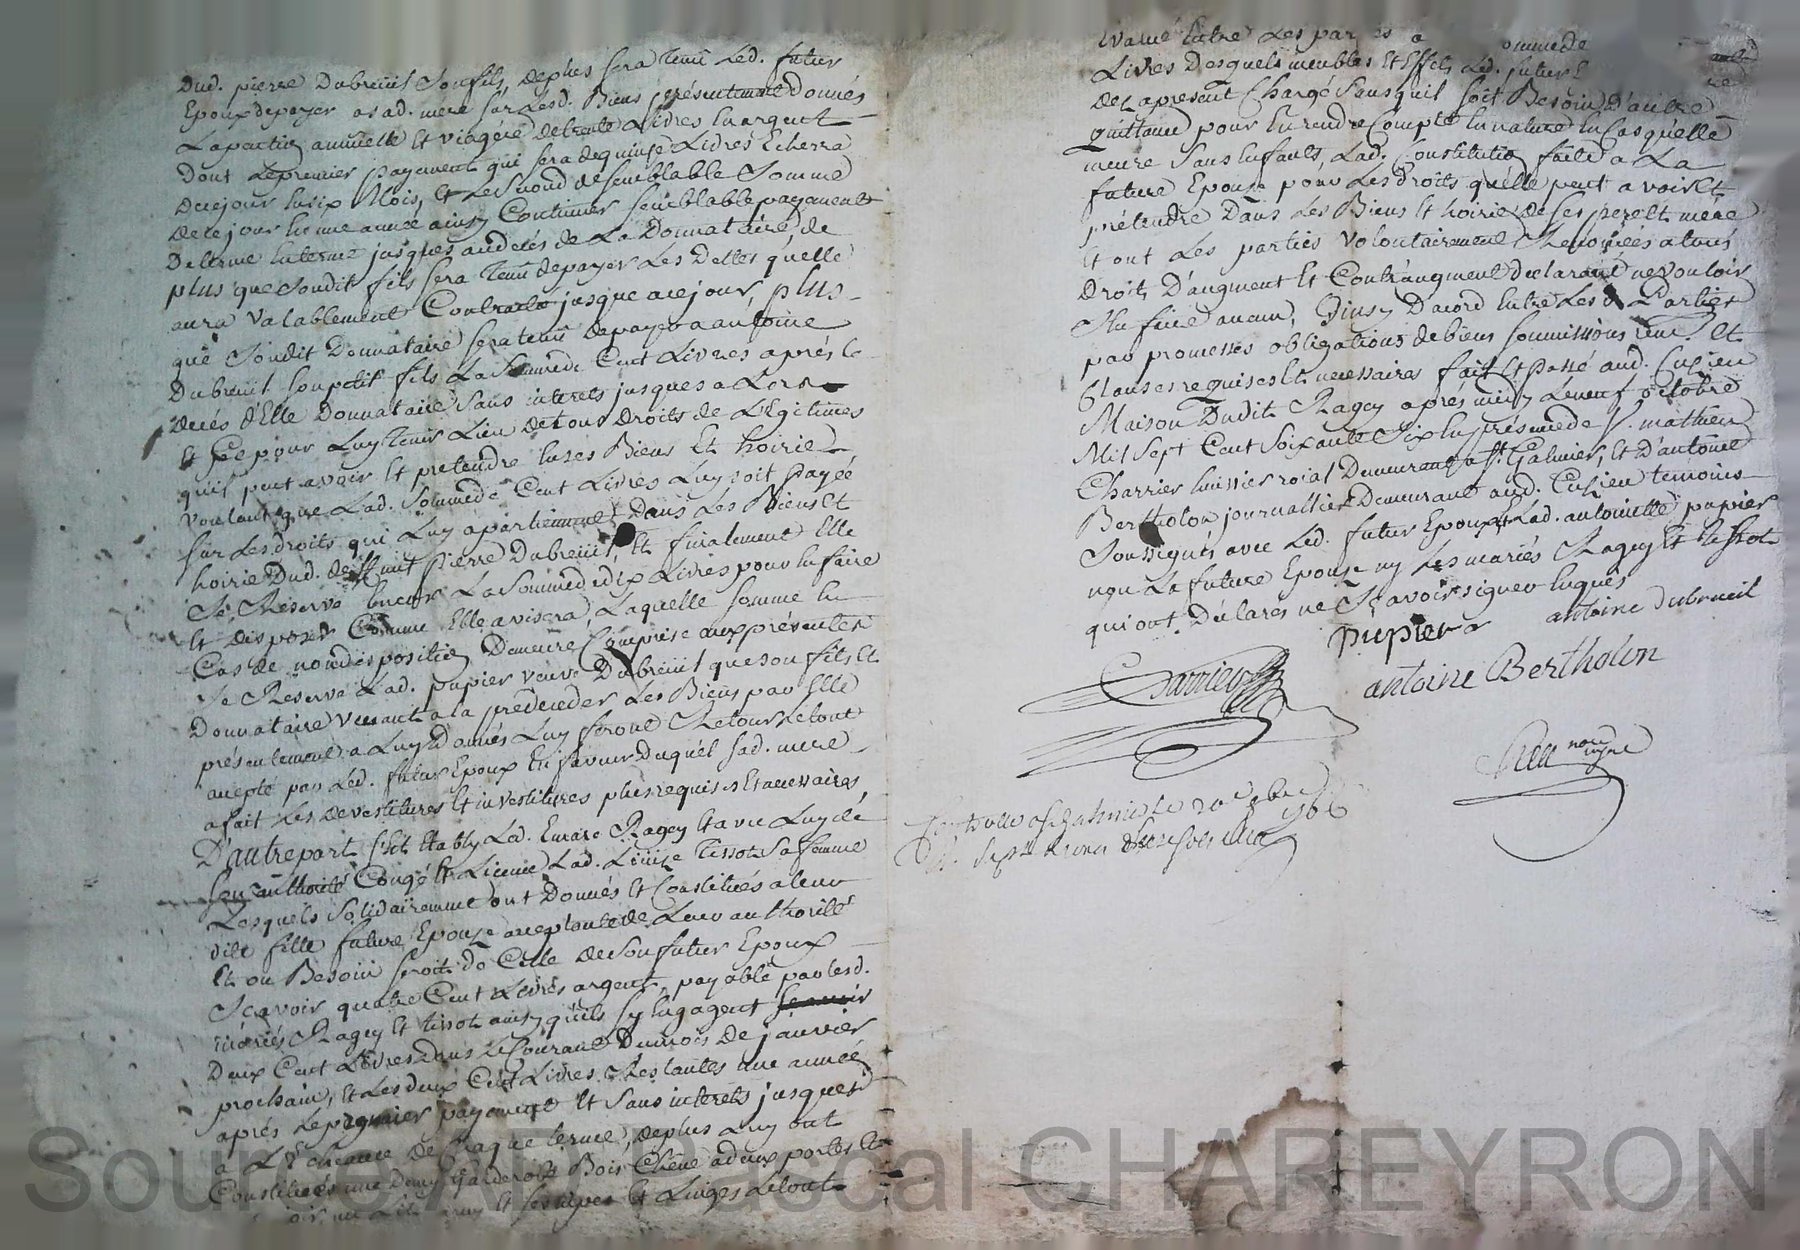 Dud. pierre Dubreüil Son fils, deplus sera Tenû Led. futur
Epoux de payer a sad. mere sur Lesd. Biens présentement donnés
La pention annuelle et viagere de trente Livres en argent
Dont Le premier payement qui sera de quinze Livres Echerra
De ce jour en six Mois, et Le second de semblable Somme
De ce jour en une année ainsy Continuer semblable payement
De terme en terme jusques au decés de La Donnataire, de
plus que Soudit fils sera tenû de payer Les Dettes qu'elle
aura Valablement Contracté jusque a ce jour, plus
que Soudit Donnataire sera tenû de payer a antoine
Dubreüil Son petit fils La Somme de Cent Livres aprés le
decés d'Elle Donnataire Sans interets jusques a Lors
et Ce pour Luy Tenir Lieu de tous Droits de Légitimes
quil peut avoir et pretendre en ses Biens et hoirie
voulant que Lad. Somme de Cent Livres Luy soit payée
sur Les droits qui Luy apartiennent Dans Les Biens et
hoirie Dud. deffunt pierre Dubreüil, et finalement Elle
Se Réserve Encor La Somme de dix Livres pour En faire
et disposer Comme Elle avisera, Laquelle Somme En
Cas de non disposition Demeure Comprise aux présentes
Se Réserve Lad. papier veuve Dubreüil que son fils et
Donnataire venant a la prédeceder Les Biens par Elle
présentement a Luy Donnés Luy feront Retour Letout
accepté par Led. futur Epoux En faveur Duquel sad. mere
a fait Les devestitures et investitures plus requises et necessaires,
D'autre part s'est Etably Led. Ragey et avec Luy de
Son authorité Congé et Licence Lad. Tissot Sa femme
Lesquels Solidairement ont Donnés et Constitués a leur
dite fille future Epouze acceptante de Leur authorité
et ou Besoin seroit de Celle de Son futur Epoux
Scavoir quatre Cent Livres argent, payable par lesd.
mariés Ragey et tissot ainsy qu'ils sy engagent
Deux Cent Livres dans Le Courant Du mois de janvier
prochain, et Les deux Cent Livres Restantes une année
aprés Le premier payement et Sans interets jusques
a L'Echeance de Chaque terme, deplus Luy ont
Constitués une Demy Garderobe Bois Chêne a deux portes et
et Linges Letout
Evalué Entre Les parties a omme de
Livres Desquels meubles et Effets Led. futur E
dez apresent Chargé Sans quil soit Besoin D'autre
quittance pour En rendre Compte En nature En Cas qu'elle
meure Sans Enfants, Lad. Constitution faite a La
future Epouze pour Les droits qu'elle peut avoir et
prétendre Dans Les Biens et hoirie de Ses pere et mere
et ont Les parties Volontairement Renoncées a tous
Droits D'augment et Contraugment declarant ne vouloir
aucun, Ainsy D'acord Entre Lesd. Parties
par promesses obligations de biens soumissions renon. et
Clauses requises et necessaires fait et passé aud. Cuzieu
Maison Dudit Ragey aprés midy Le neuf octobre
Mil Sept Cent Soixante Six En présence de S. mathieu
Charrier huissier roial Demeurant a St. Galmier, et D'antoine
Bertholon journallier Demeurant aud. Cuzieu temoins
Soussignés avec Led. futur Epoux et Lad. antoinette papier
non La future Epouze ny Les mariés Ragey et tissot
qui ont Déclarés ne Scavoir signer Enquis
pupier
antoine dubrueil
Charrier
antoine Bertholon
nore
Controllé a St. Galmier le 20e 8bre 1766